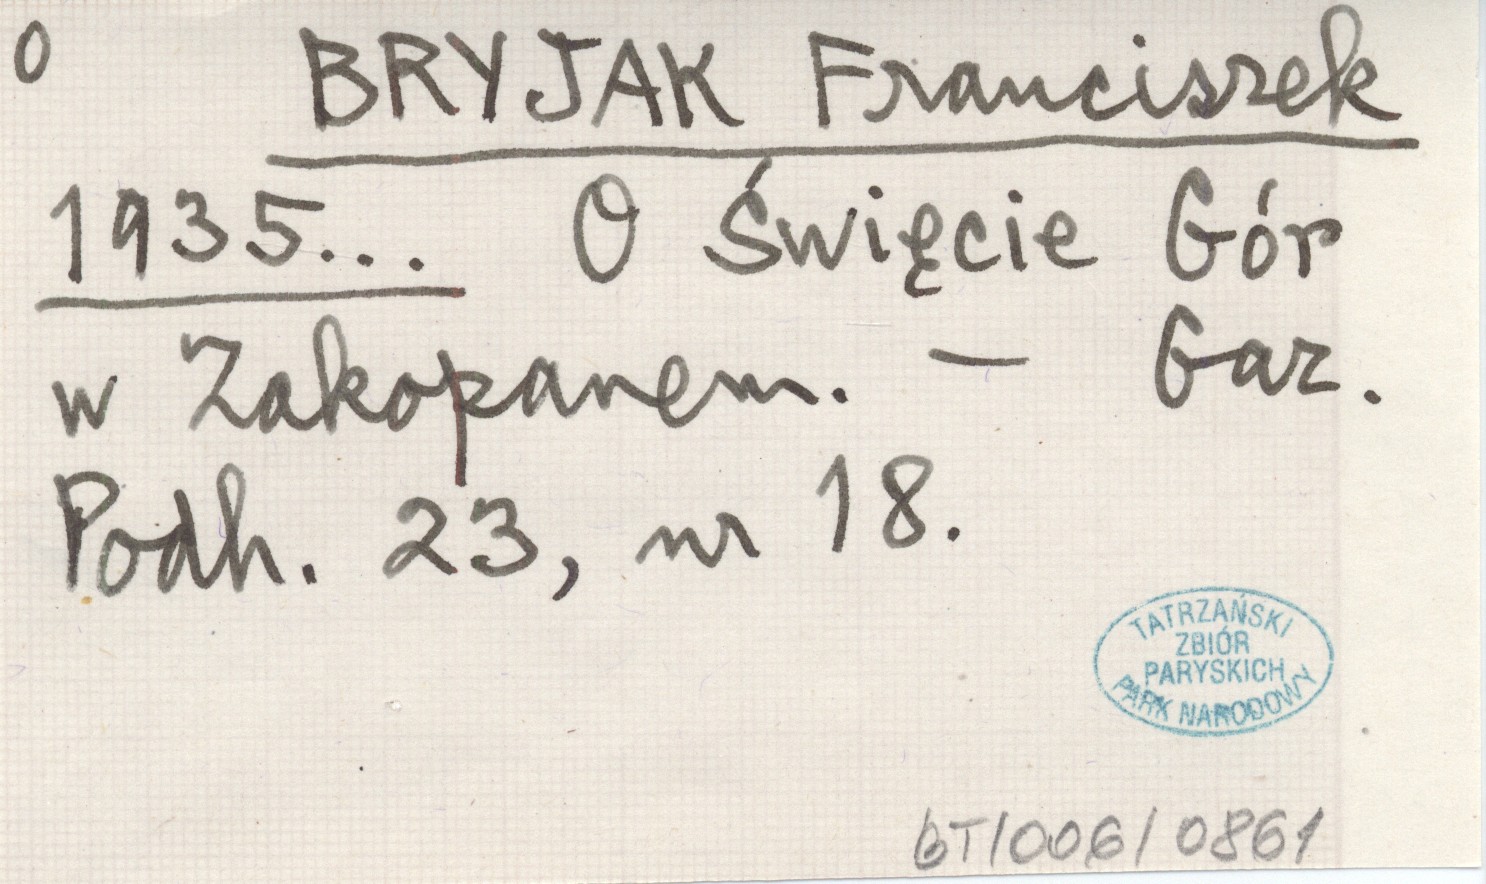 0 BRYJAK Franciszek
1935... O Święcie Gór
w Zakopanem. — Gaz.
Podh. 23, nr 18.
TATRZAŃSKI
ZBIÓR
PARYSKICH
PARK NARODOWY
BT/006/0861